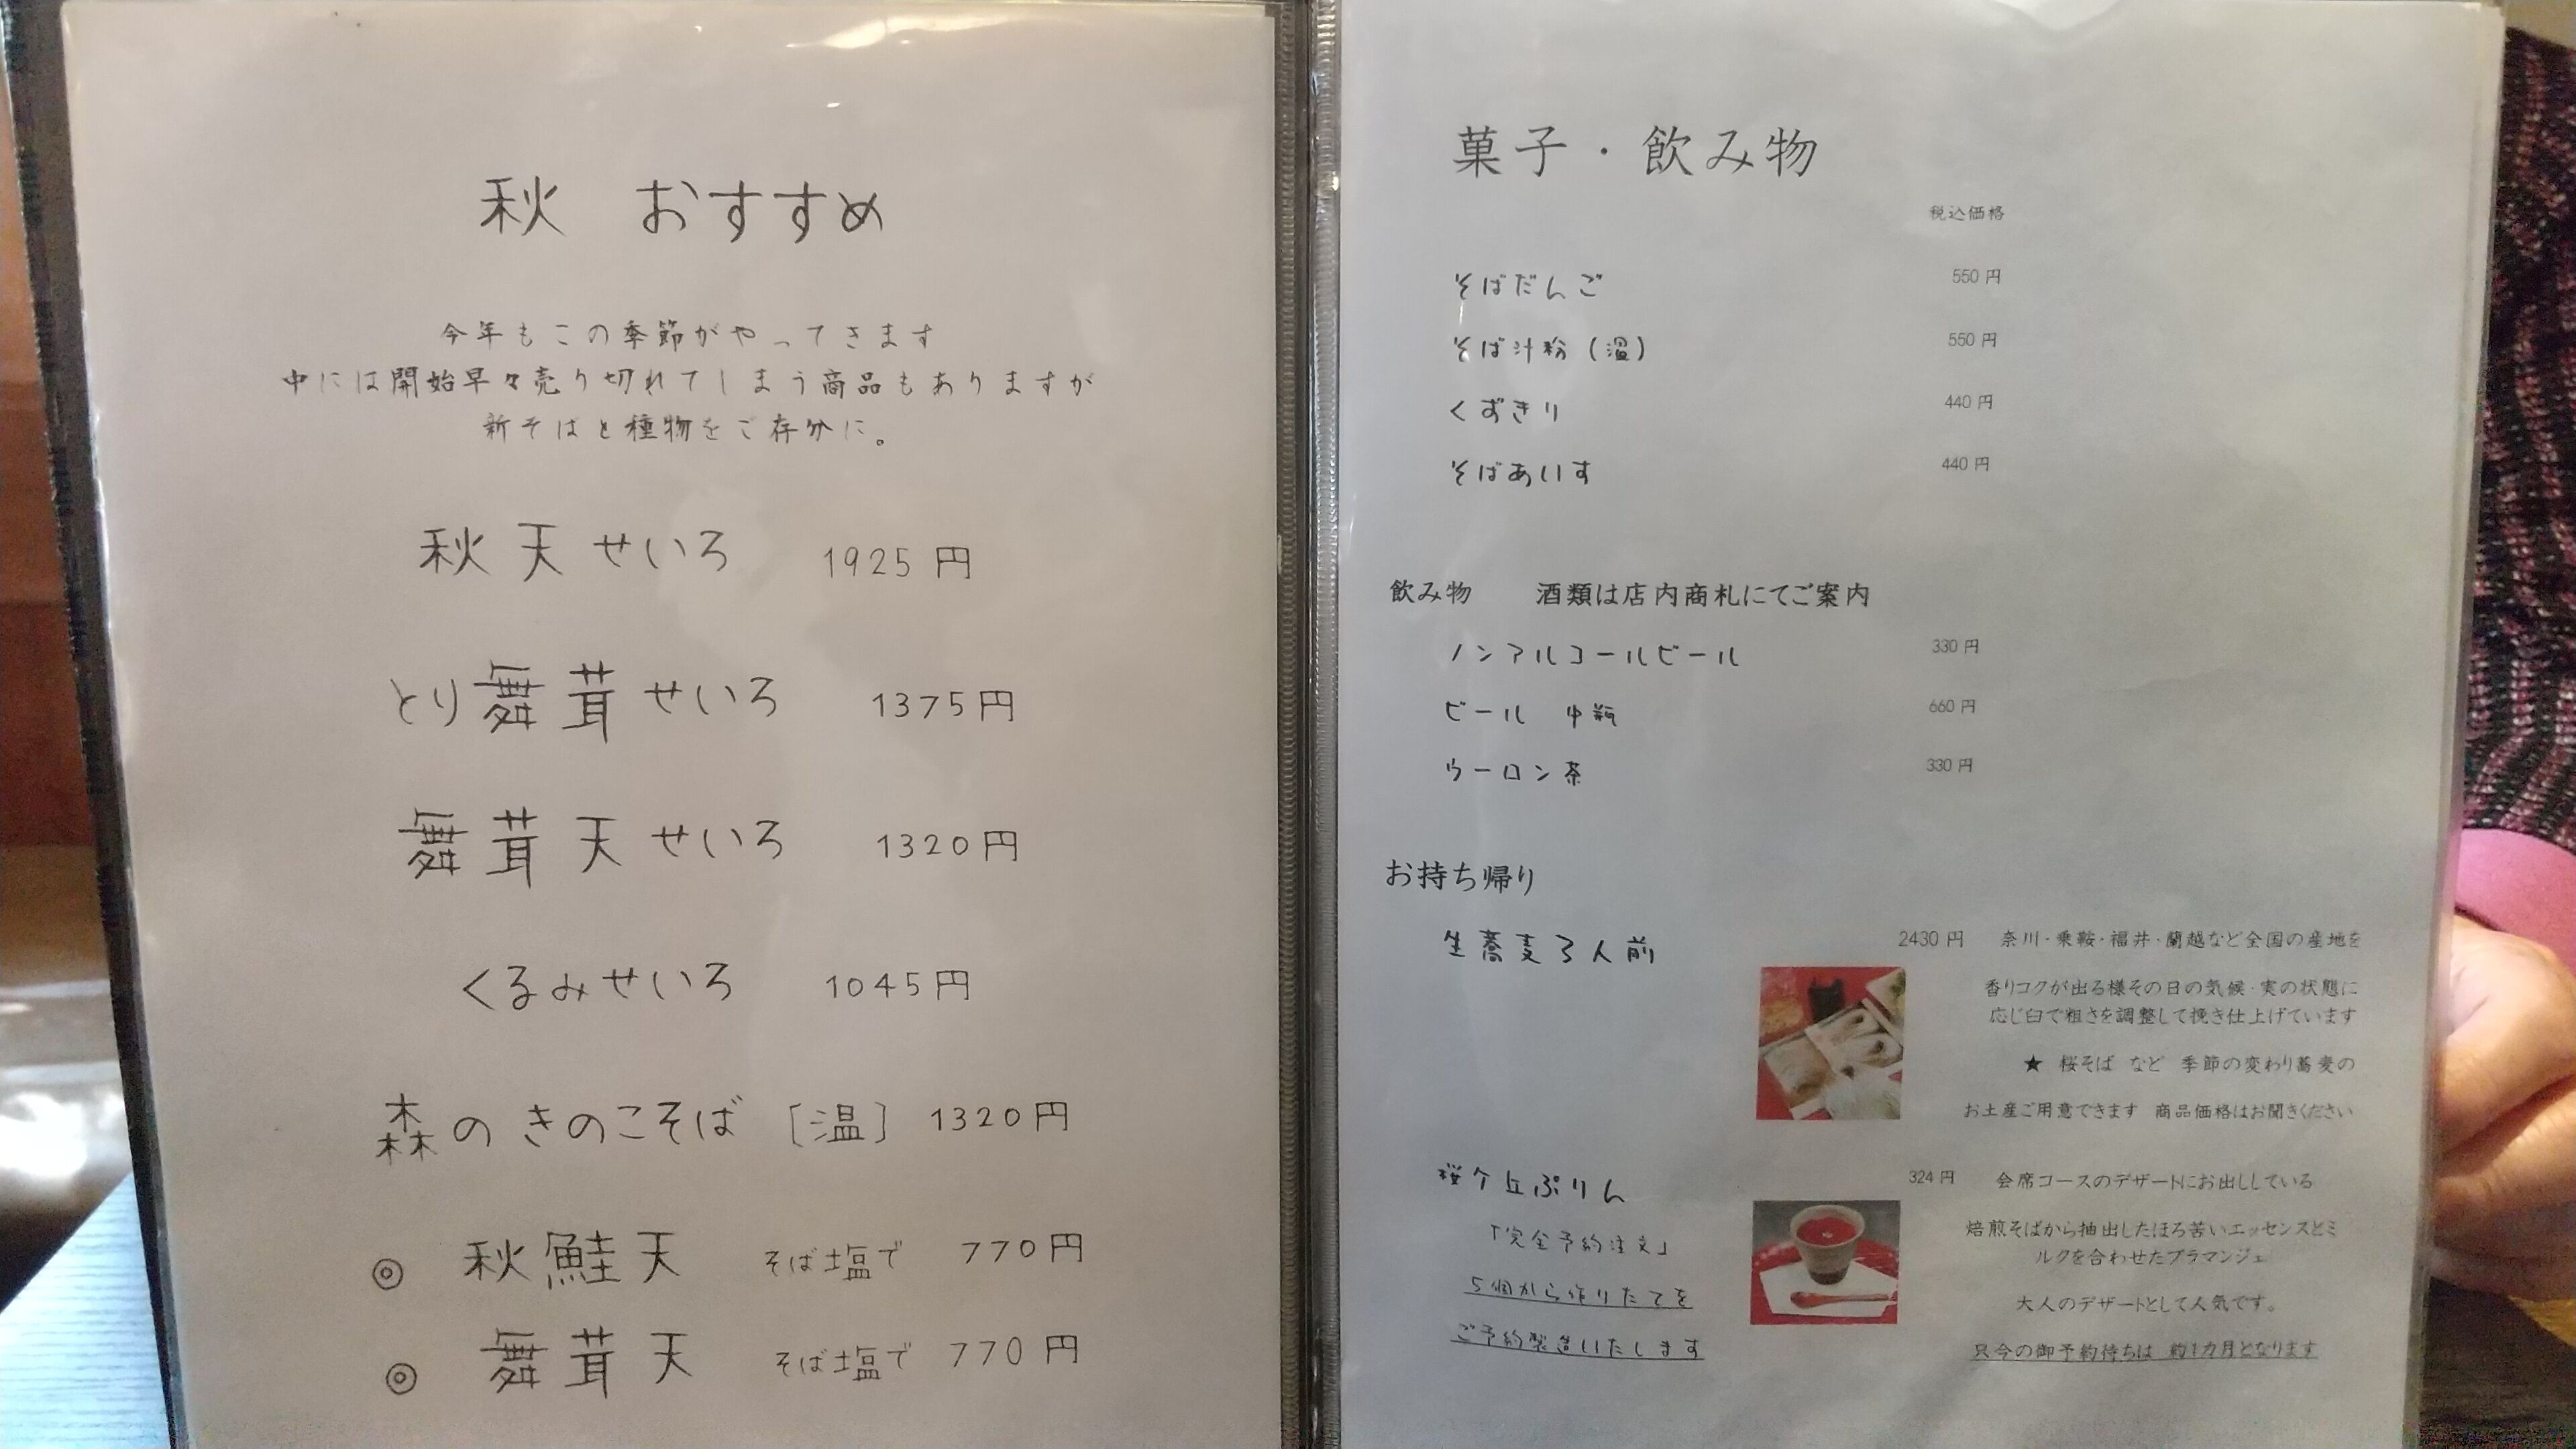 秋 おすすめ
今年もこの季節がやってきます
中には開始早々売り切れてしまう商品もありますが
新そばと種物をご存分に。
秋天せいろ 1925円
とり舞茸せいろ 1375円
舞茸天せいろ 1320円
くるみせいろ 1045円
森のきのこそば〔温〕 1320円
◎ 秋鮭天 そば塩で 770円
◎ 舞茸天 そば塩で 770円
菓子・飲み物
税込価格
そばだんご 550円
そば汁粉(温) 550円
くずきり 440円
そばあいす 440円
飲み物 酒類は店内商札にてご案内
ノンアルコールビール 330円
ビール 中瓶 660円
ウーロン茶 330円
お持ち帰り
生蕎麦3人前 2430円 奈川・乗鞍・福井・蘭越など全国の産地を
香りコクが出る様その日の気候・実の状態に
応じ臼で粗さを調整して挽き仕上げています
★ 桜そば など 季節の変わり蕎麦の
お土産ご用意できます 商品価格はお聞きください
桜ケ丘ぷりん 324円 会席コースのデザートにお出ししている
「完全予約注文」
5個から作りたてを
ご予約製造いたします
焙煎そばから抽出したほろ苦いエッセンスとミ
ルクを合わせたブラマンジェ
大人のデザートとして人気です。
只今の御予約待ちは 約1カ月となります